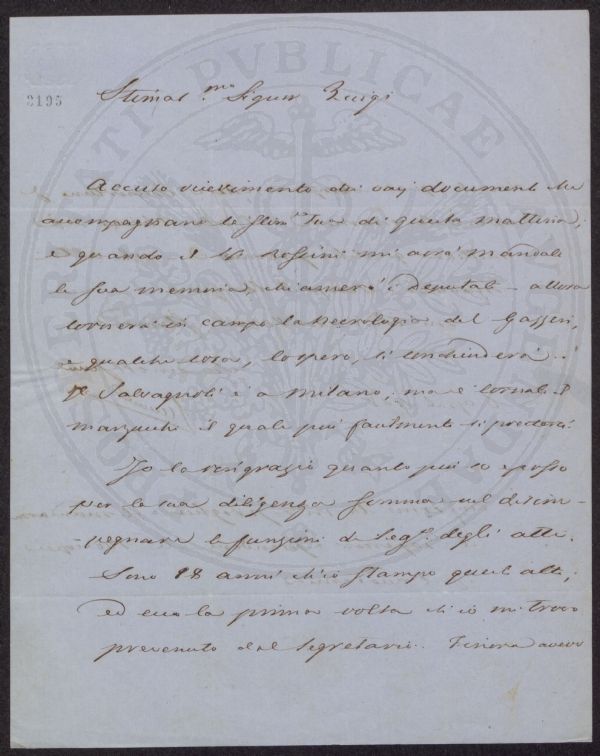 PROSPERITATI PVBLICAE AVGENDAE
3195
Stimat.mo Signor Luigi
Accuso ricevimento dei varj documenti che
accompagnano la stim.ta sua di questa mattina,
e quando il Rossini mi avrà mandata
la sua memoria, chiamerò i Deputati - allora
tornerà in campo la Necrologia del Gazzeri,
e qualche cosa, lo spero, si concluderà.
Salvagnoli è a Milano, ma è tornato il
il quale più facilmente si presterà.
Io la ringrazio quanto più so e posso
per la sua diligenza somma nel disim-
-pegnare le funzioni di Seg.o degli atti.
Sono 18 anni ch'io stampo questi atti,
ed ecco la prima volta ch'io mi trovo
prevenuto dal Segretario. Finora avevo